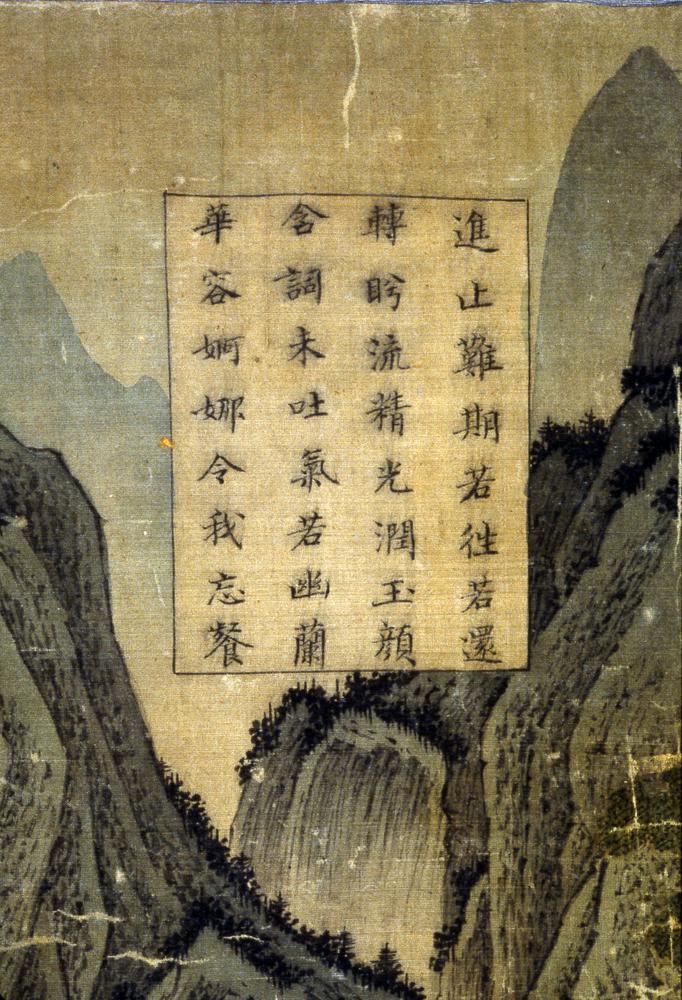 進止難期若往若還
轉眄流精光潤玉顔
含詞未吐氣若幽蘭
華容婀娜令我忘餐